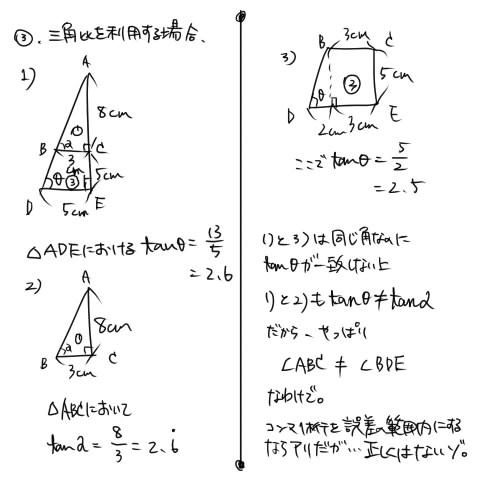 ③. 三角比を利用する場合、
1)
A
8cm
①
B α C
3cm
θ ③ 5cm
D 5cm E
△ADEにおける tanθ = 13/5
= 2.6
2)
A
8cm
①
B α C
3cm
△ABCにおいて
tanα = 8/3 = 2.6̇
3)
B 3cm C
③ 5cm
θ
D 2cm 3cm E
ここで tanθ = 5/2
= 2.5
1)と3)は同じ角なのに
tanθが一致しない上
1)と2)も tanθ≠tanα
だから、やっぱり
∠ABC ≠ ∠BDE
なわけで。
コンマ1桁を誤差の範囲内にする
ならアリだが… 正しくはないゾ。